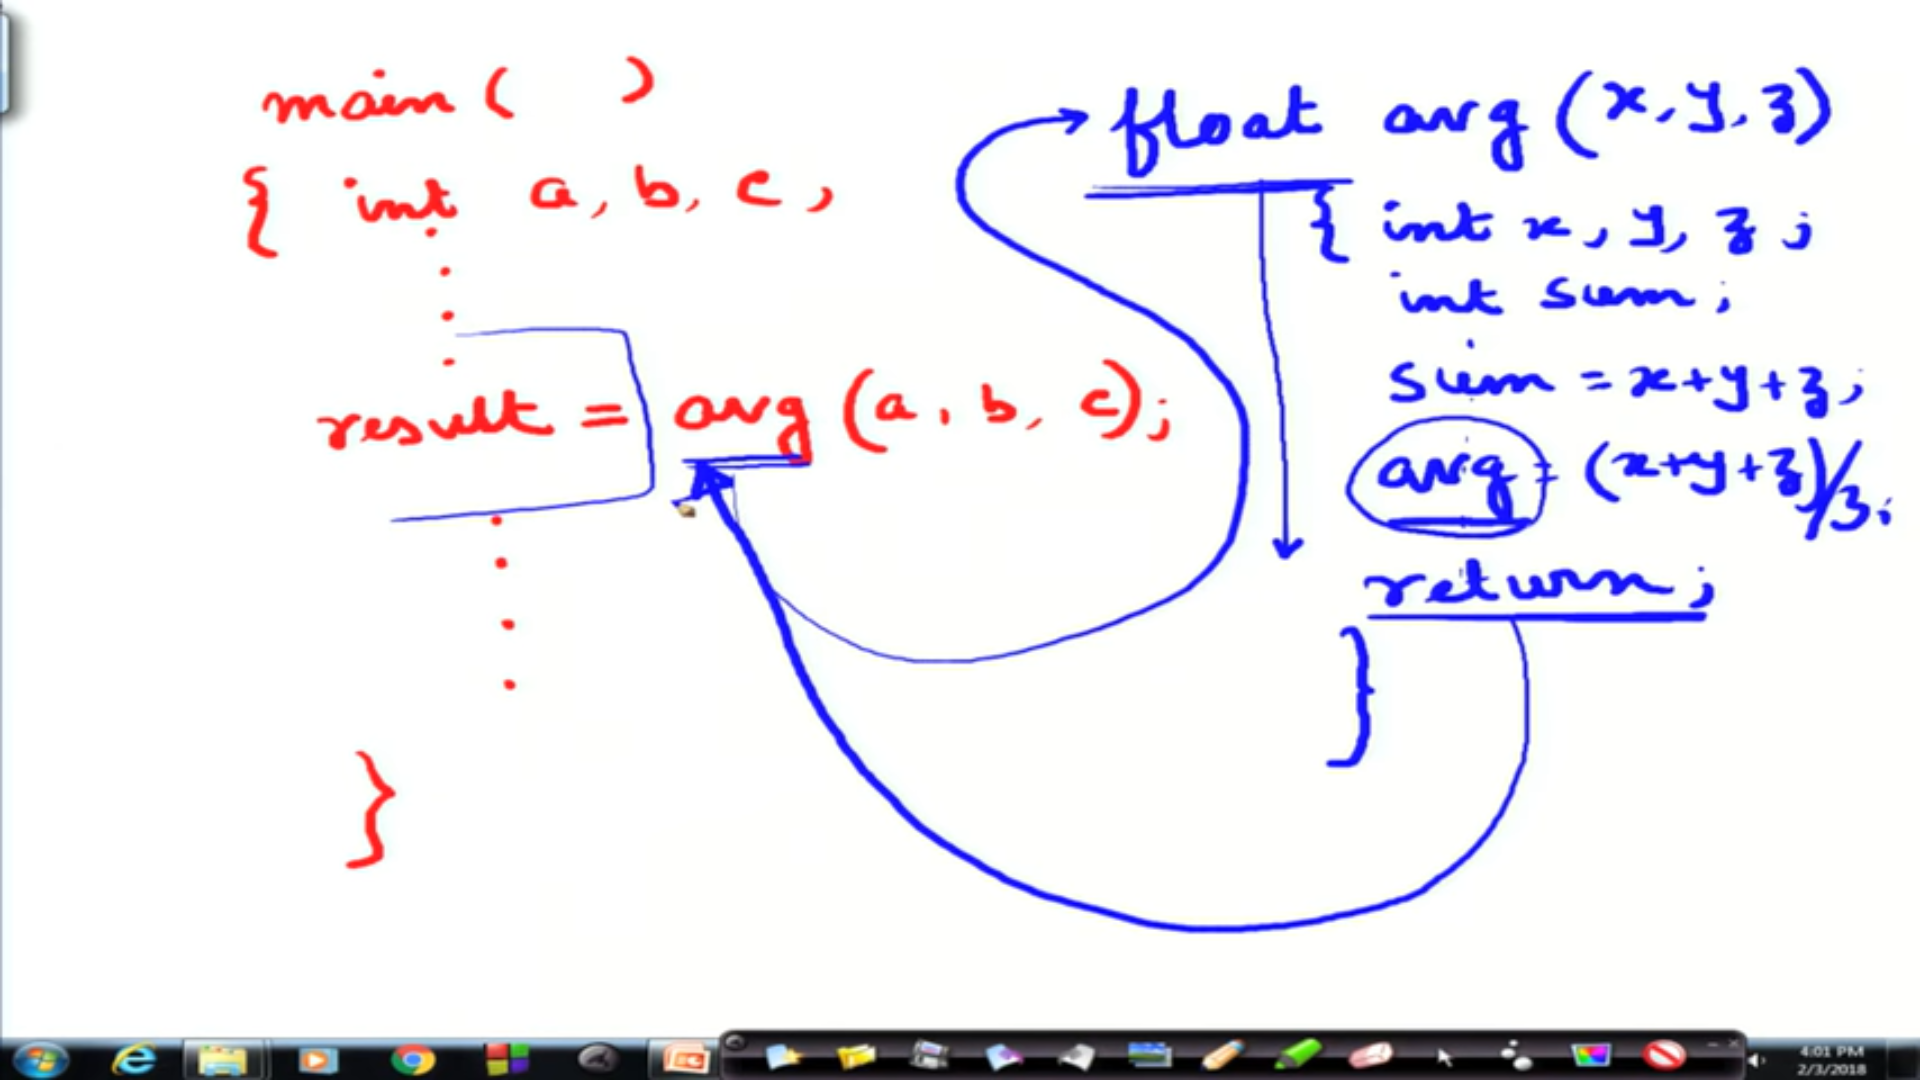 main ( )
{ int a, b, c,
result = avg (a, b, c);
}
float avg (x, y, z)
{ int x, y, z ;
int sum ;
sum = x+y+z ;
avg = (x+y+z)/3 ;
return ;
}
4:01 PM
2/3/2018